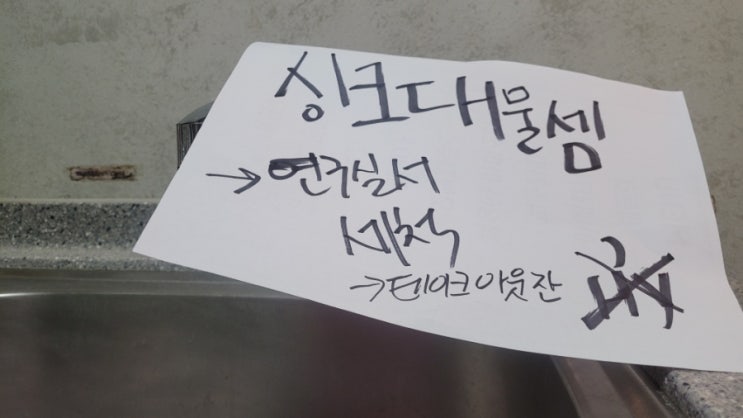 싱크대물셈
→연구실서
세척
→테이크아웃잔